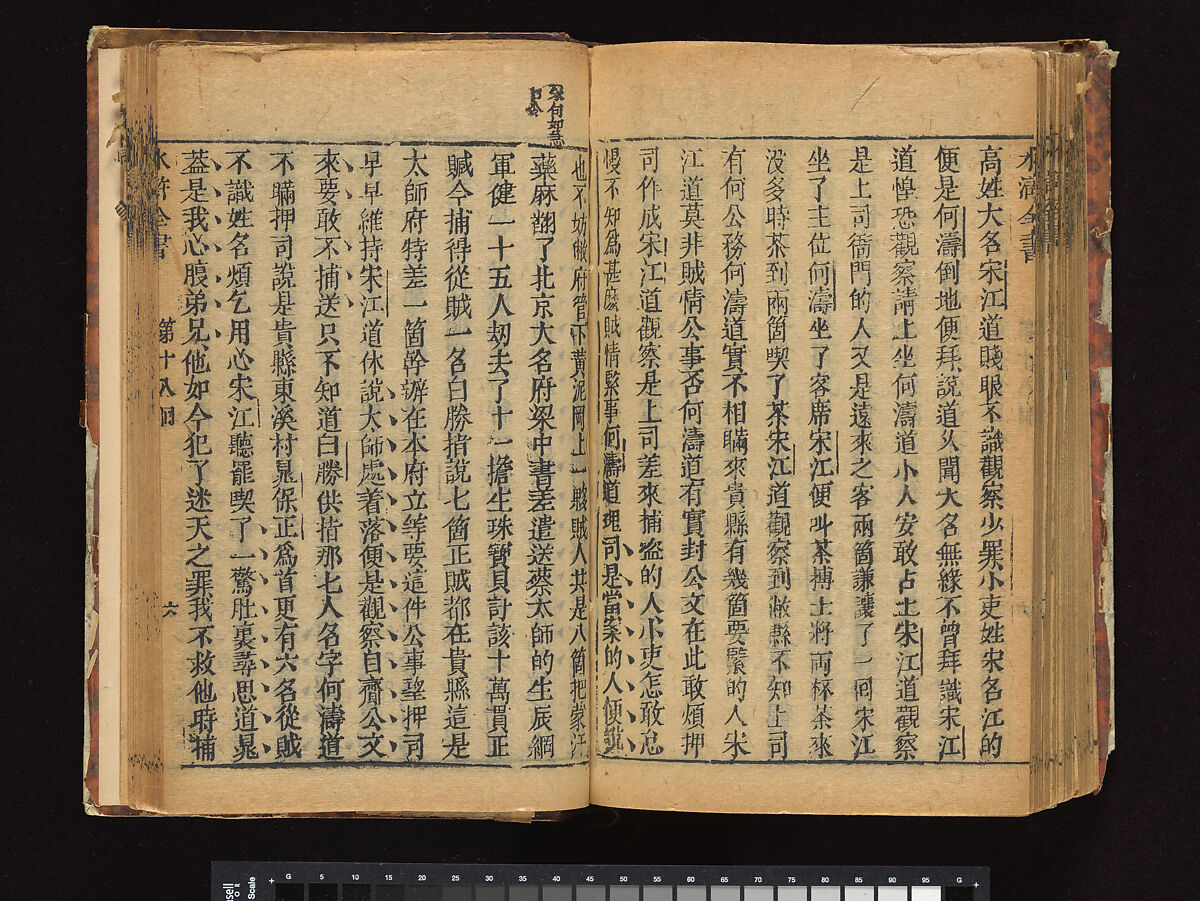 水滸全書
高姓大名宋江道賤眼不識觀察少罪小吏姓宋名江的
便是何濤倒地便拜說道久聞大名無緣不曾拜識宋江
道惶恐觀察請上坐何濤道小人安敢占上宋江道觀察
是上司衙門的人又是遠來之客兩箇謙讓了一回宋江
坐了主位何濤坐了客席宋江便叫茶博士將兩杯茶來
沒多時茶到兩箇喫了茶宋江道觀察到敝縣不知上司
有何公務何濤道實不相瞞來貴縣有幾箇要緊的人宋
江道莫非賊情公事否何濤道有實封公文在此敢煩押
司作成宋江道觀察是上司差來捕盜的人小吏怎敢怠
慢不知爲甚麼賊情緊事何濤道押司是當案的人便說
也不妨敝府管下黃泥岡上一夥賊人共是八箇把蒙汗
藥麻翻了北京大名府梁中書差遣送蔡太師的生辰綱
軍健一十五人刼去了十一擔生珠寶貝計該十萬貫正
贓今捕得從賊一名白勝指說七箇正賊都在貴縣這是
太師府特差一箇幹辦在本府立等要這件公事望押司
早早維持宋江道休說太師處着落便是觀察自齎公文
來要敢不捕送只不知道白勝供指那七人名字何濤道
不瞞押司說是貴縣東溪村晁保正爲首更有六名從賊
不識姓名煩乞用心宋江聽罷喫了一驚肚裏尋思道晁
蓋是我心腹弟兄他如今犯了迷天之罪我不救他時捕
水滸全書 第十八回 六
G 5 10 15 20 25 30 35 40 45 50 55 60 65 70 75 80 85 90 95 G